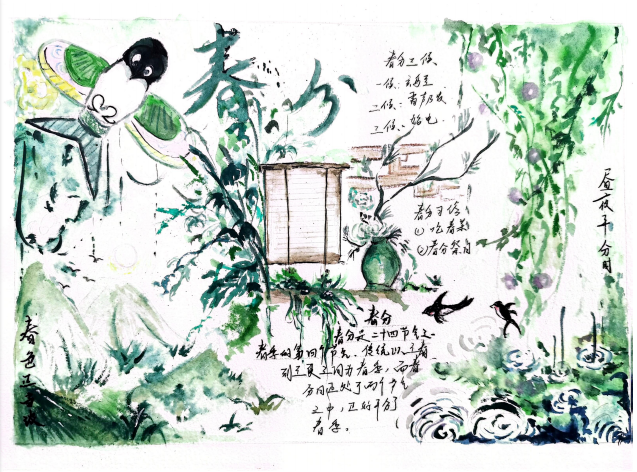 春分
春分三候
一候：玄鸟至
二候：雷乃发
三候：始电
春分习俗
①吃春菜
②春分祭日
昼夜平分日
春分
春分是二十四节气之
春季的第四个节气。传统以立春
到立夏之间为春季，而春
分日正处于两个节气
之中，正好平分了
春季。
春色正